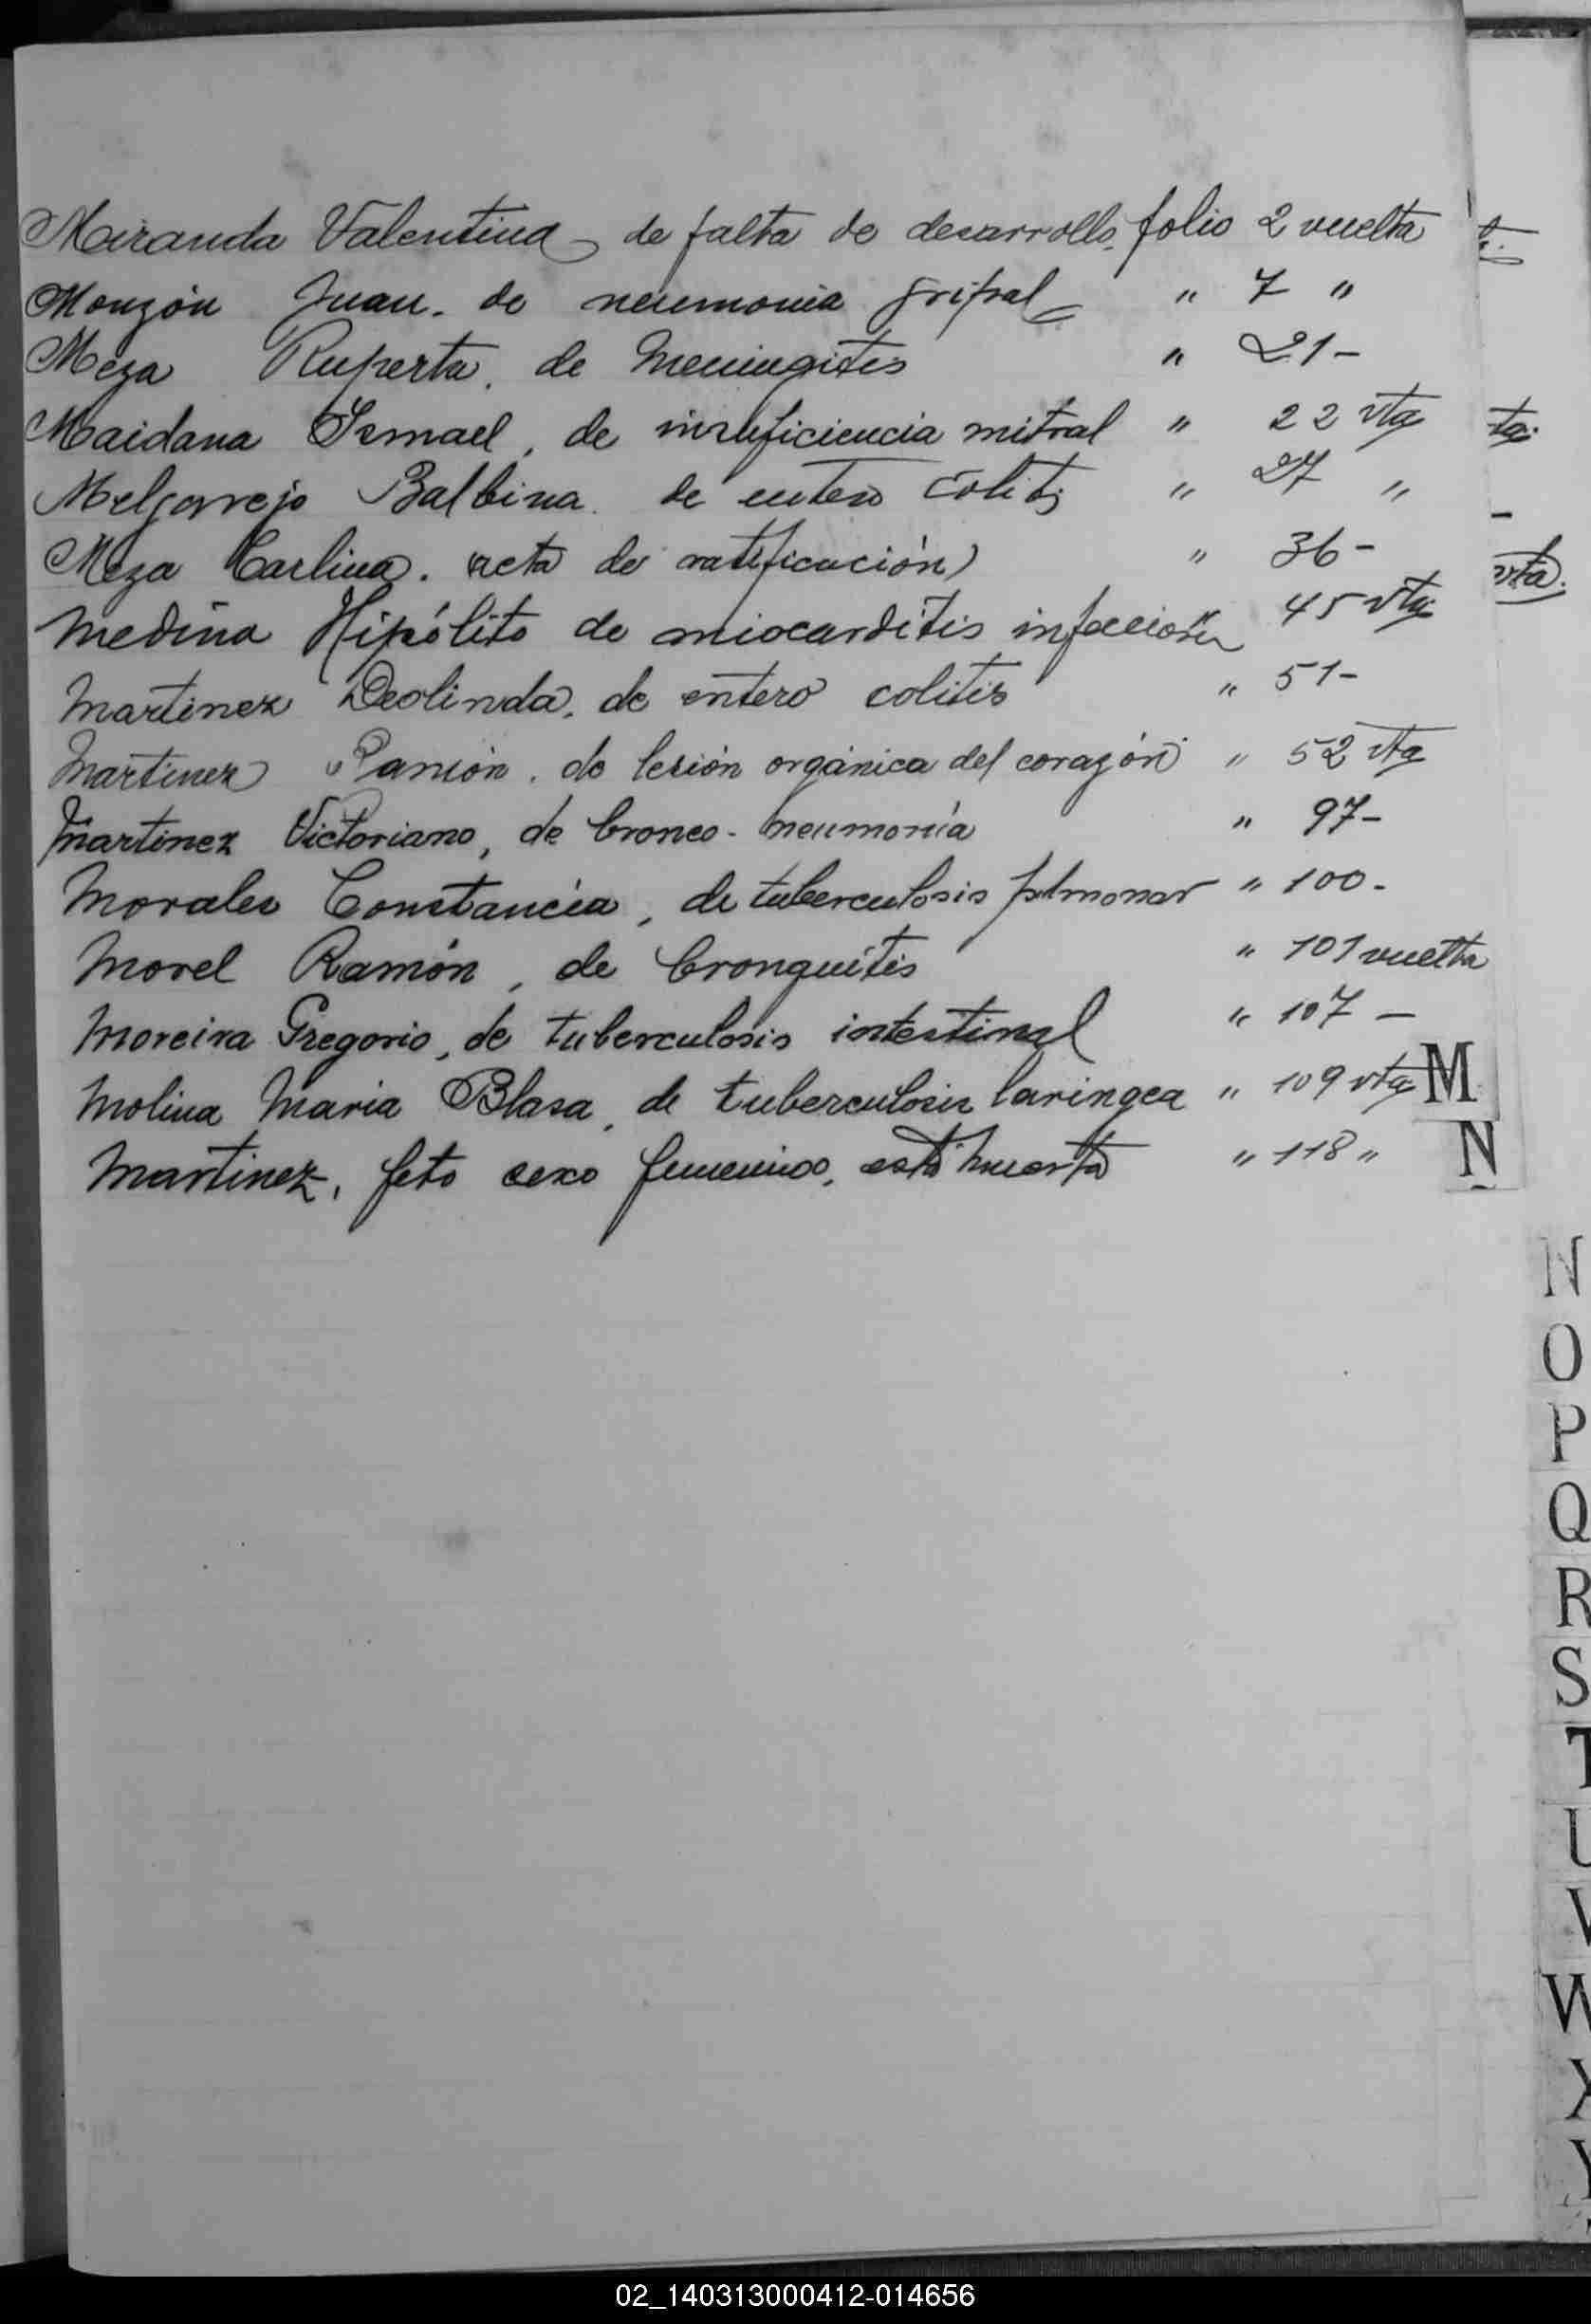 Miranda Valentina de falta de desarrollo. folio 2 vuelta
Monzón Juan. de neumonia gripal " 7 "
Meza Ruperta. de Meningitis " 21-
Maidana Ismael, de insuficiencia mitral " 22 vta
Melgarejo Balbina. de entero colitis " 27 "
Meza Carlina. (acta de ratificación) " 36-
Medina Hipólito de miocarditis infecciosa 45 vta
Martinez Deolinda. de entero colitis " 51-
Martinez Ramón. de lesión orgánica del corazón " 52 vta
Martinez Victoriano, de bronco-neumonía " 97-
Morales Constancia, de tuberculosis pulmonar " 100.
Morel Ramón, de bronquitis " 101 vuelta
Moreira Gregorio, de tuberculosis intestinal " 107 —
Molina Maria Blasa, de tuberculosis laringea " 109 vta M
Martinez, feto sexo femenino, esta muerta " 118 " N
ta.
vta.
N
O
P
Q
R
S
T
U
V
W
X
Y
02_140313000412-014656